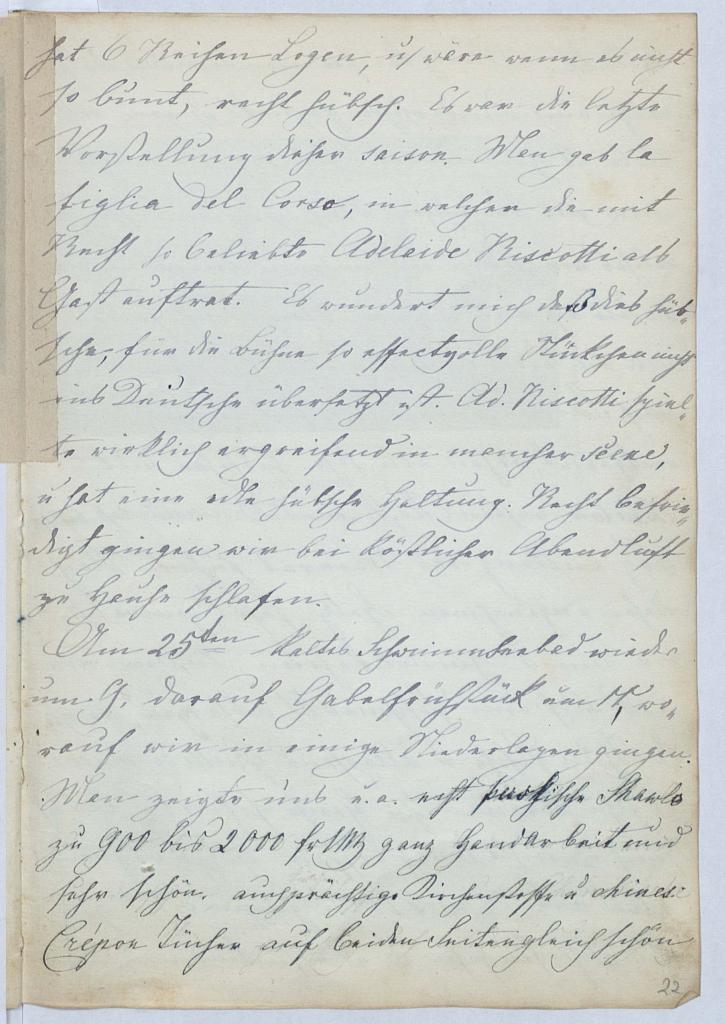 hat 6 Reihen Logen, u wäre wenn es nicht
so bunt, recht hübsch. Es war die letzte
Vorstellung dieser saison. Man gab la
figlia del Corso, in welcher die mit
Recht so beliebte Adelaide Riscotti als
Gast auftrat. Es wundert mich daß dies hüb-
sche, für die Bühne so effectvolle Stückchen nicht
ins Deutsche übersetzt ist. Ad. Riscotti spiel-
te wirklich ergreifend in mancher Scene,
u hat eine edle hübsche Haltung. Recht befrie-
digt gingen wir bei köstlicher Abendluft
zu Hause schlafen.
Am 25ten kaltes Schwimmseebad wieder
um 9, darauf Gabelfrühstück um 11, wo-
rauf wir in einige Niederlagen gingen.
Man zeigte uns u. a. echt Shawls
zu 900 bis 2000 fr ganz Handarbeit und
sehr schön. auch prächtige Kirchenstoffe u chines:
Crépon Tücher auf beiden Seiten gleich schön
22